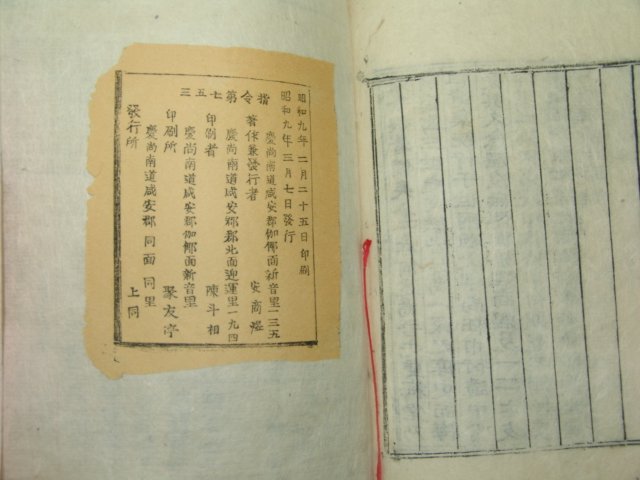 昭和九年二月二十五日印刷
昭和九年三月七日發行
指令第七五三
慶尚南道咸安郡伽倻面新音里一三五
著作兼發行者 安商燈
慶尚南道咸安郡郡北面迎運里一九四
印刷者 陳斗相
慶尚南道咸安郡伽倻面新音里
印刷所 聚友亭
慶尚南道咸安郡同面同里
發行所 上同